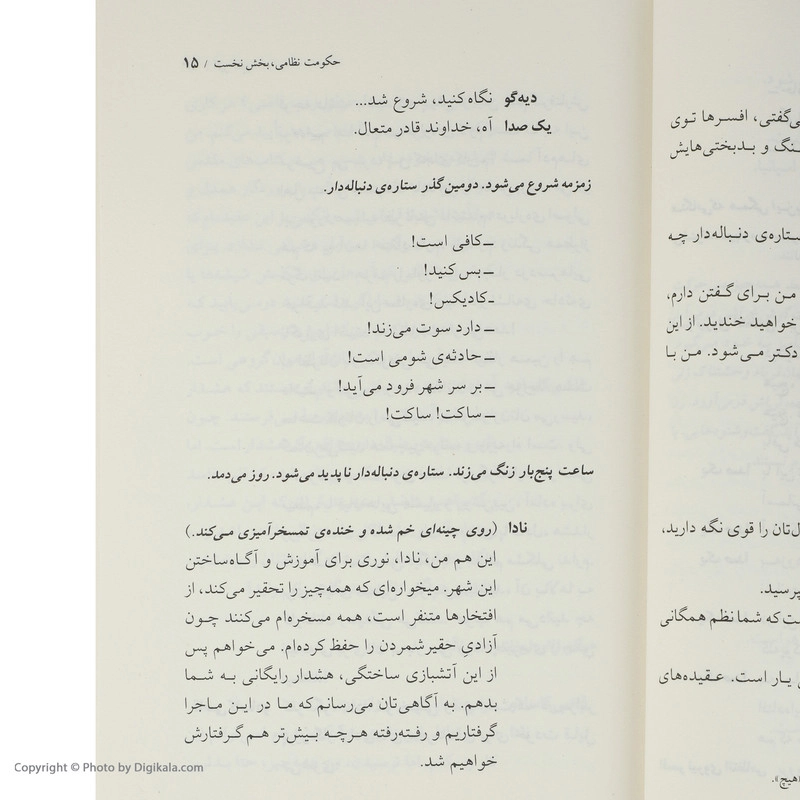 ی‌گفتی، افسرها توی
نگ و بدبختی‌هایش
ستاره‌ی دنباله‌دار چه
من برای گفتن دارم،
خواهید خندید. از این
دکتر می‌شود. من با
ل‌تان را قوی نگه دارید،
پرسید.
ت که شما نظم همگانی
یار است. عقیده‌های
هیچ».
حکومت نظامی، بخش نخست / ۱۵
دیه‌گو نگاه کنید، شروع شد...
یک صدا آه، خداوند قادر متعال.
زمزمه شروع می‌شود. دومین گذر ستاره‌ی دنباله‌دار.
ــ کافی است!
ــ بس کنید!
ــ کادیکس!
ــ دارد سوت می‌زند!
ــ حادثه‌ی شومی است!
ــ بر سر شهر فرود می‌آید!
ــ ساکت! ساکت!
ساعت پنج‌بار زنگ می‌زند. ستاره‌ی دنباله‌دار ناپدید می‌شود. روز می‌دمد.
نادا (روی چینه‌ای خم شده و خنده‌ی تمسخرآمیزی می‌کند.)
این هم من، نادا، نوری برای آموزش و آگاه‌ساختن
این شهر. میخواره‌ای که همه‌چیز را تحقیر می‌کند، از
افتخارها متنفر است، همه مسخره‌ام می‌کنند چون
آزادیِ حقیرشمردن را حفظ کرده‌ام. می‌خواهم پس
از این آتشبازی ساختگی، هشدار رایگانی به شما
بدهم. به آگاهی‌تان می‌رسانم که ما در این ماجرا
گرفتاریم و رفته‌رفته هرچه بیش‌تر هم گرفتارش
خواهیم شد.
Copyright © Photo by Digikala.com